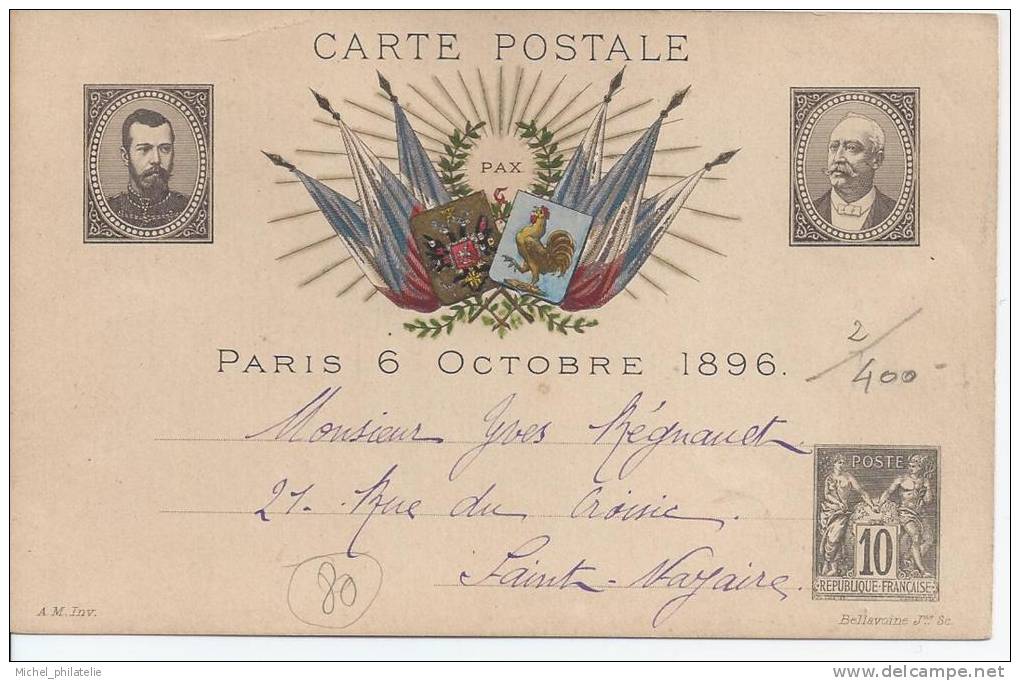 CARTE POSTALE
PAX
PARIS 6 OCTOBRE 1896.
2/400
Monsieur Yves Régnault
21. Rue du Croisic.
Saint-Nazaire.
80
POSTE
10
REPUBLIQUE FRANÇAISE
A. M. Inv.
Bellavoine Jne Sc.
Michel_philatelie
www.delcampe.net